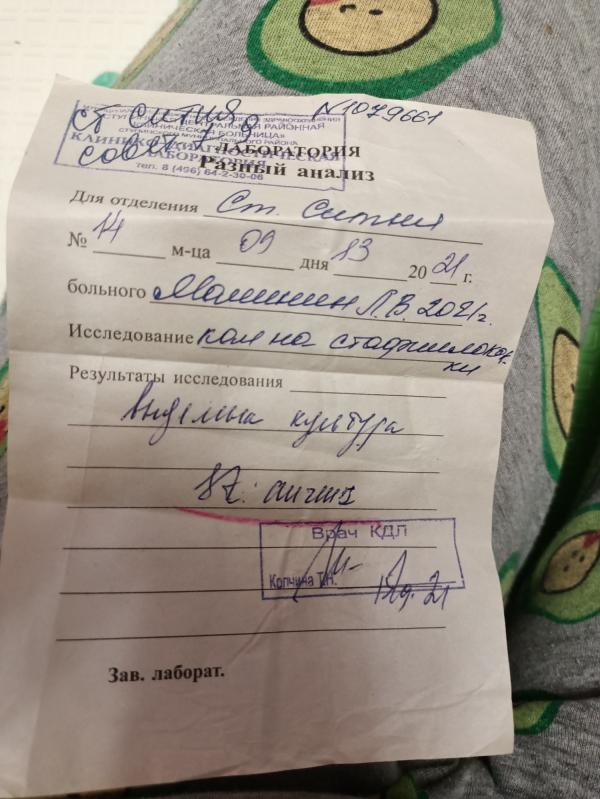 №1079661
ст Ситня
СТУПИНСКАЯ ЦЕНТРАЛЬНАЯ РАЙОННАЯ
КЛИНИЧЕСКАЯ БОЛЬНИЦА»
СТУПИНСКОГО МУНИЦИПАЛЬНОГО РАЙОНА
КЛИНИКО-ДИАГНОСТИЧЕСКАЯ
ЛАБОРАТОРИЯ
тел. 8 (496) 64-2-30-06
ЛАБОРАТОРИЯ
Разный анализ
Для отделения Ст. Ситня
№ 14 м-ца 09 дня 13 2021 г.
больного Малинин Л.В. 2021г.
Исследование кал на стафилококки
Результаты исследования
выделена культура
St.
Врач КДЛ
Копчина Т.Н.
09.21
Зав. лаборат.